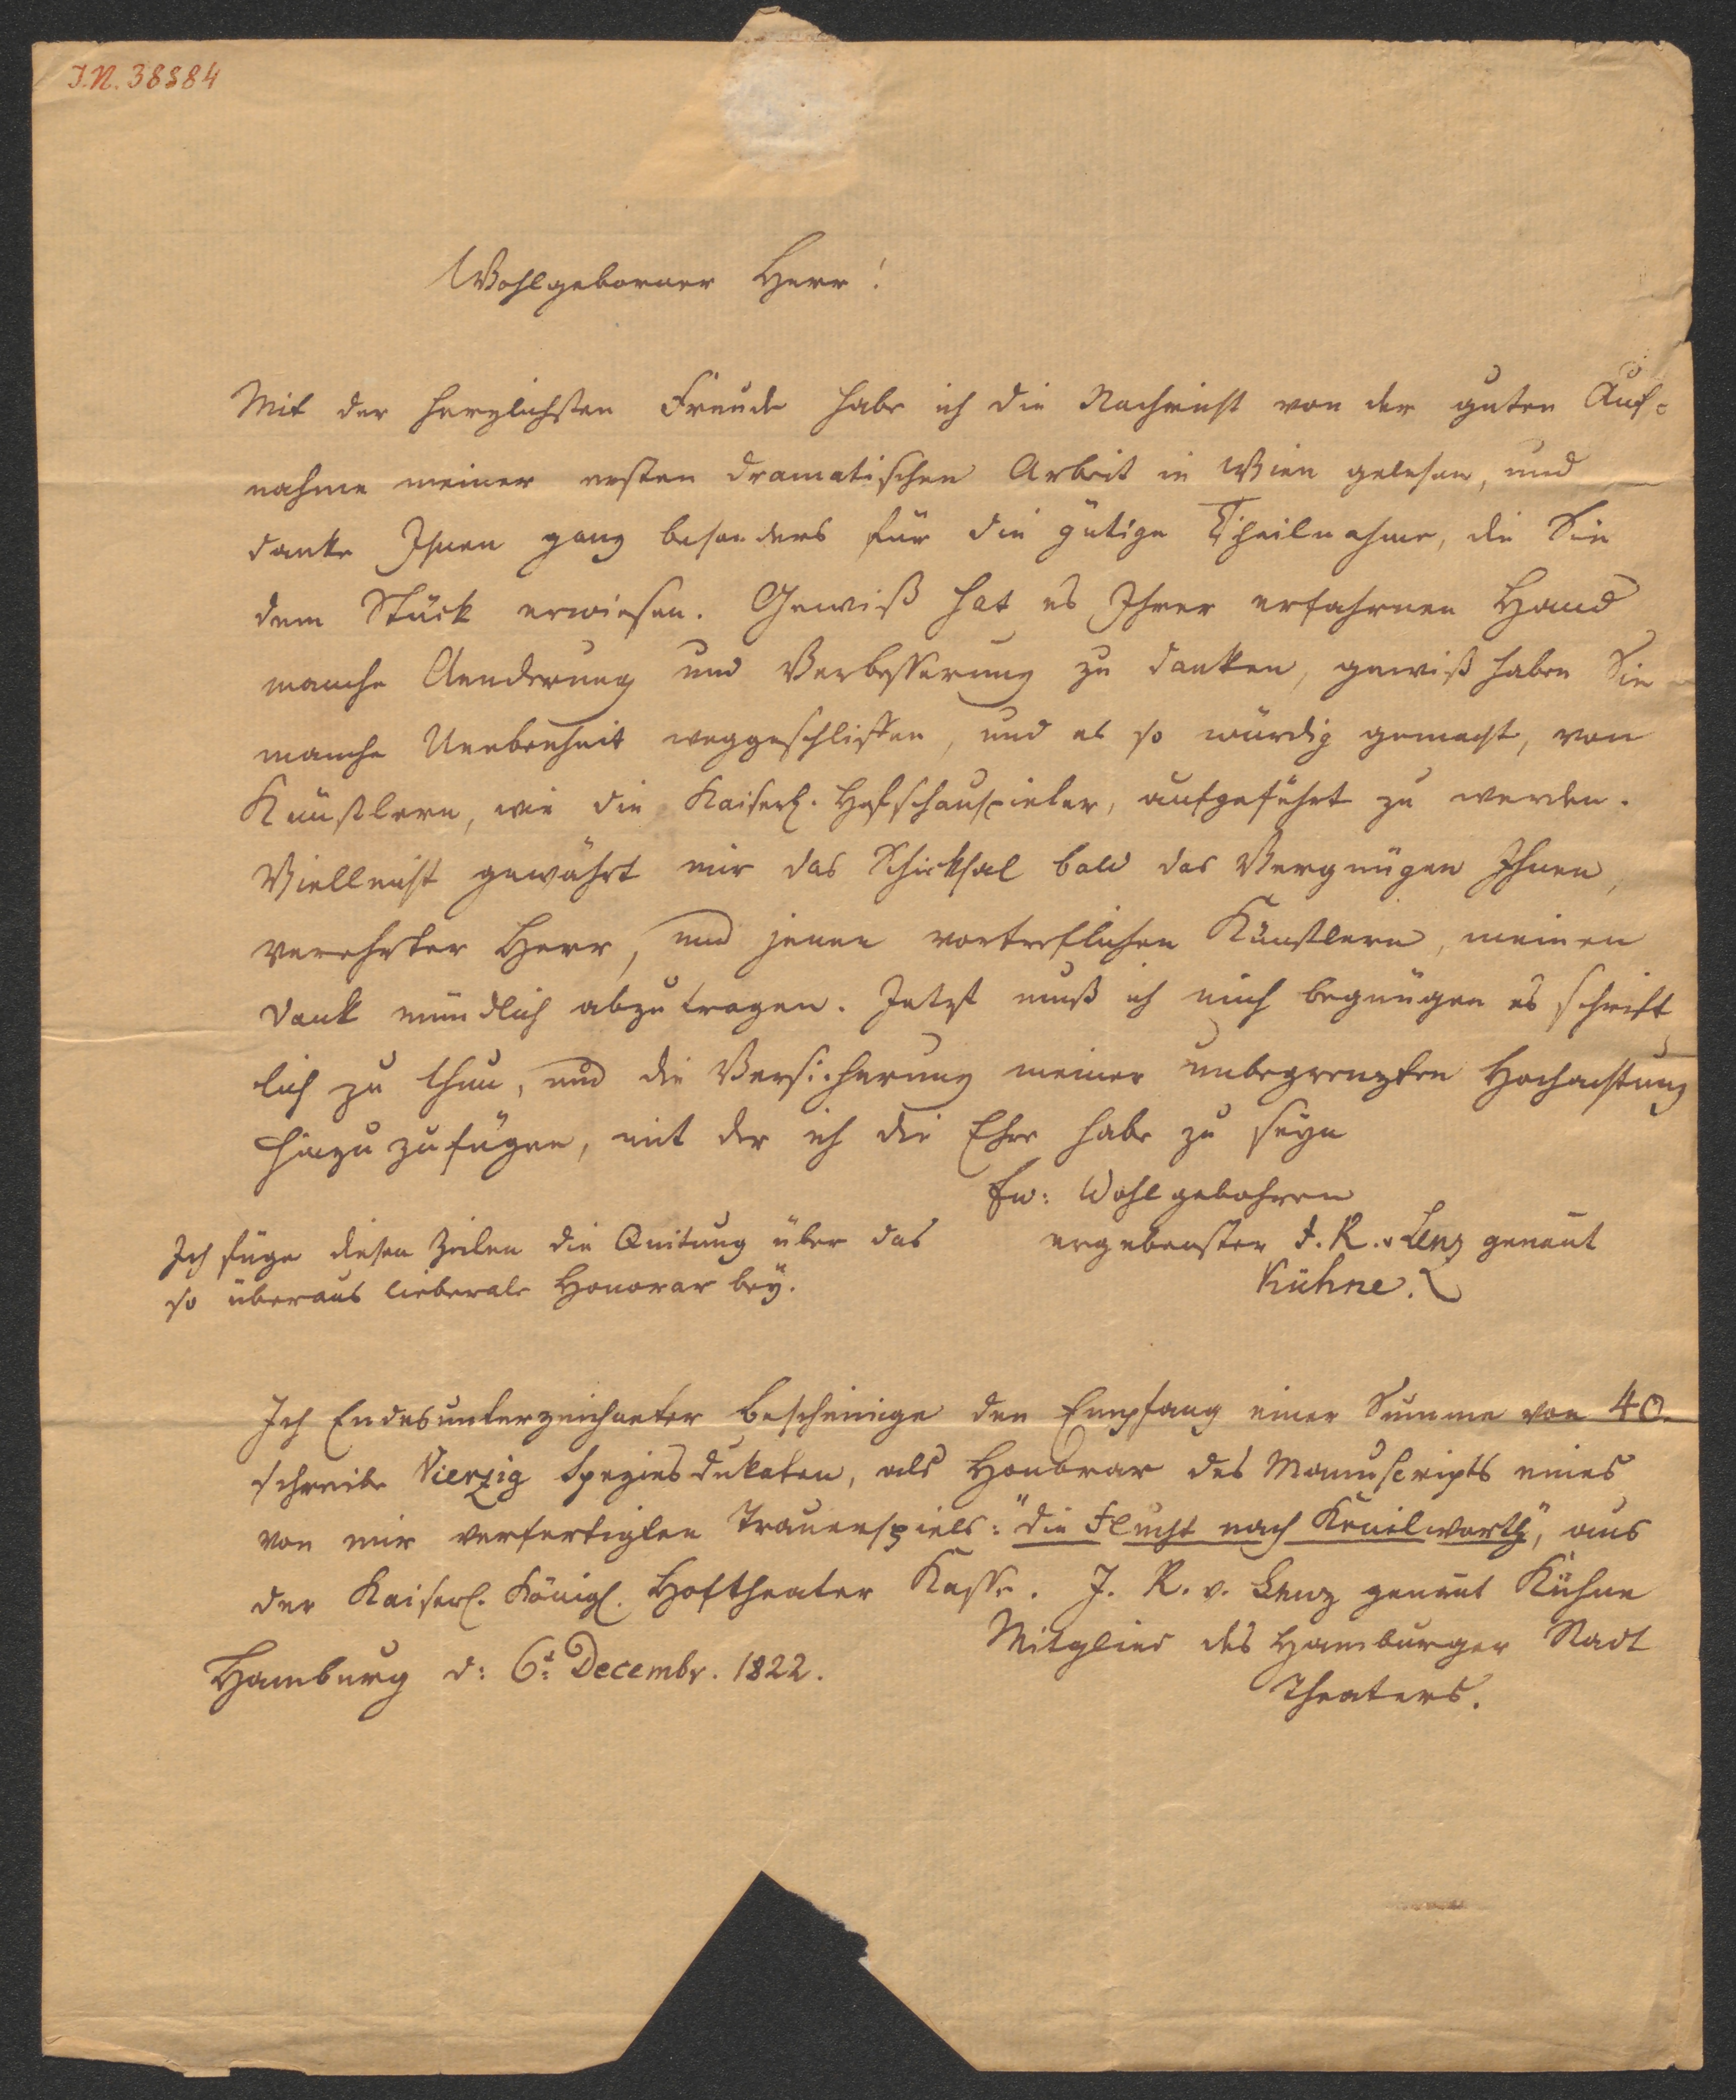 I.N. 38384
Wohlgeborner Herr!
Mit der herzlichsten Freude habe ich die Nachricht von der guten Auf-
nahme meiner ersten dramatischen Arbeit in Wien gelesen, und
danke Ihnen ganz besonders für die gütige Theilnahme, die Sie
dem Stück erwiesen. Gewiß hat es Ihrer erfahrnen Hand
manche Aenderung und Verbesserung zu danken, gewiß haben Sie
manche Unebenheit weggeschliffen, und es so würdig gemacht, von
Künstlern, wie die Kaiserl. Hofschauspieler, aufgeführt zu werden.
Vielleicht gewährt mir das Schicksal bald das Vergnügen Ihnen,
verehrter Herr, und jenen vortreflichen Künstlern, meinen
Dank mündlich abzutragen. Jetzt muß ich mich begnügen es schrift
lich zu thun, und die Versicherung meiner unbegrenzten Hochachtung
hinzuzufügen, mit der ich die Ehre habe zu seyn
Ew: Wohlgebohren
ergebenster J. R. v Lenz genant
Kühne.
Ich füge diesen Zeilen die Quitung über das
so überaus lieberale Honorar bey.
Ich Endesunterzeichneter bescheinige den Empfang einer Summe von 40.
schreibe Vierzig Speziesdukaten, als Honorar des Manuscripts eines
von mir verfertigten Trauerspiels: "die Flucht nach Kenilworth", aus
der Kaiserl. Königl. Hoftheater Kasse. J. R. v. Lenz genant Kühne
Mitglied des Hamburger Stadt
Theaters.
Hamburg d: 6t Decembr. 1822.